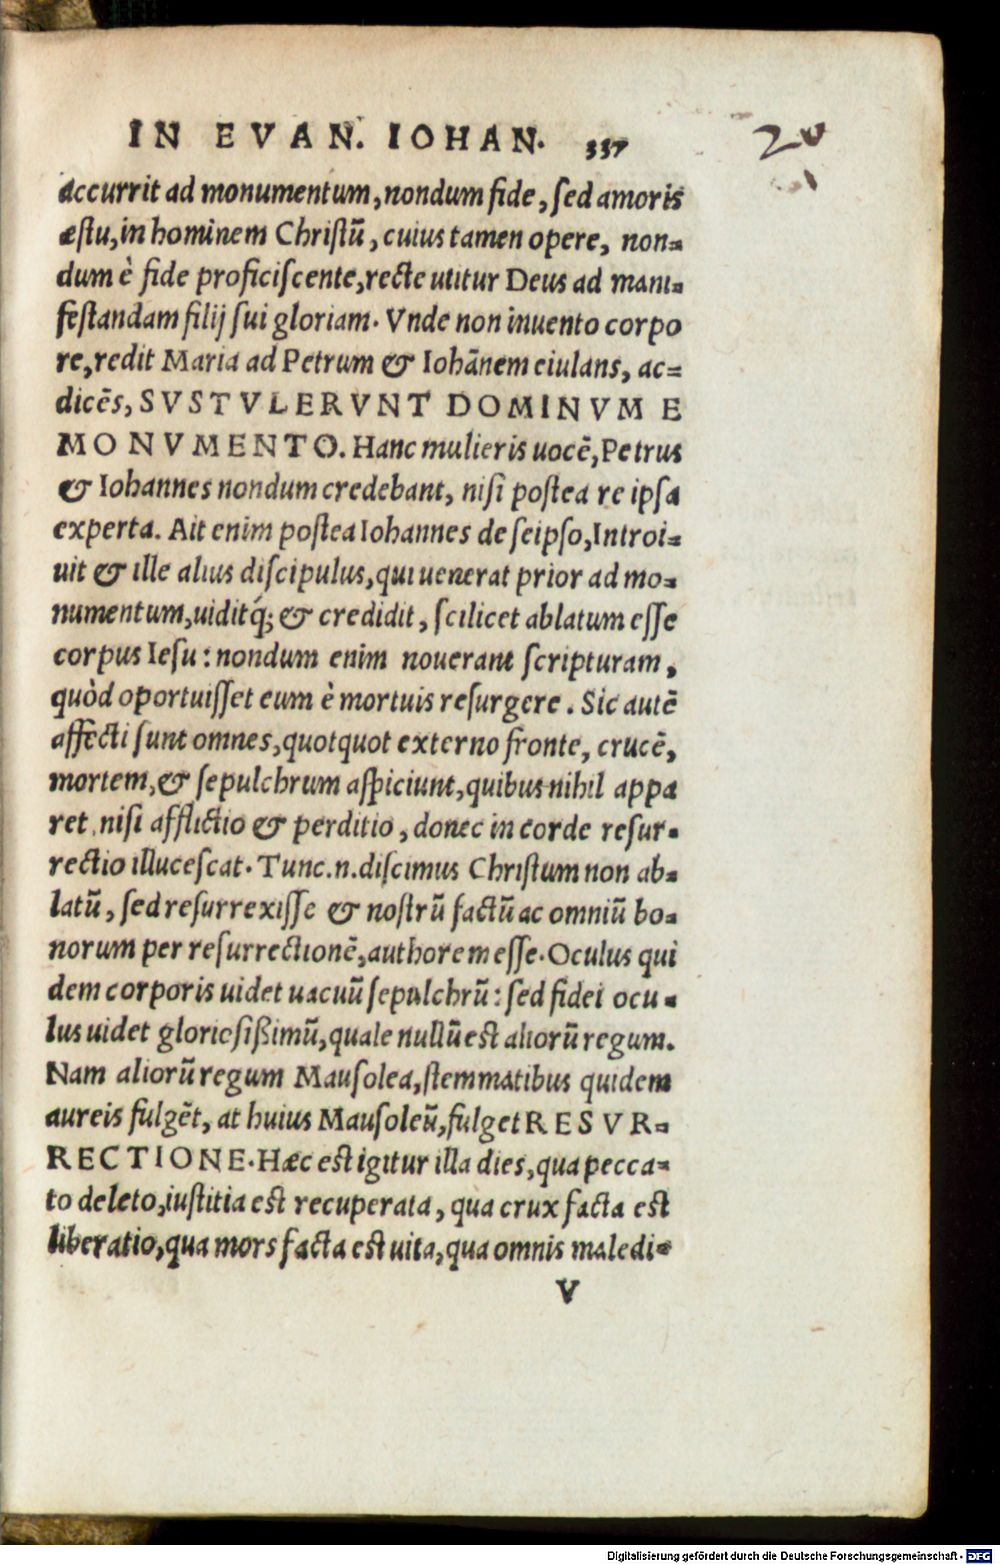 IN EVAN. IOHAN. 337
20
accurrit ad monumentum, nondum fide, sed amoris
æstu, in hominem Christũ, cuius tamen opere, non-
dum è fide proficiscente, recte utitur Deus ad mani-
festandam filij sui gloriam. Vnde non inuento corpo
re, redit Maria ad Petrum & Iohãnem eiulans, ac-
dicẽs, SVSTVLERVNT DOMINVM E
MONVMENTO. Hanc mulieris uocẽ, Petrus
& Iohannes nondum credebant, nisi postea re ipsa
experta. Ait enim postea Iohannes de seipso, Introi-
uit & ille alius discipulus, qui uenerat prior ad mo-
numentum, uiditq́; & credidit, scilicet ablatum esse
corpus Iesu: nondum enim nouerant scripturam,
quòd oportuisset eum è mortuis resurgere. Sic autẽ
affecti sunt omnes, quotquot externo fronte, crucẽ,
mortem, & sepulchrum aspiciunt, quibus nihil appa
ret nisi afflictio & perditio, donec in corde resur-
rectio illucescat. Tunc.n.discimus Christum non ab-
latũ, sed resurrexisse & nostrũ factũ ac omniũ bo-
norum per resurrectionẽ, authorem esse. Oculus qui
dem corporis uidet uacuũ sepulchrũ: sed fidei ocu-
lus uidet gloriosißimũ, quale nullũ est aliorũ regum.
Nam aliorũ regum Mausolea, stemmatibus quidem
aureis fulgẽt, at huius Mausoleũ, fulget RESVR-
RECTIONE. Hæc est igitur illa dies, qua pecca-
to deleto, iustitia est recuperata, qua crux facta est
liberatio, qua mors facta est uita, qua omnis maledi-
V
Digitalisierung gefördert durch die Deutsche Forschungsgemeinschaft - DFG